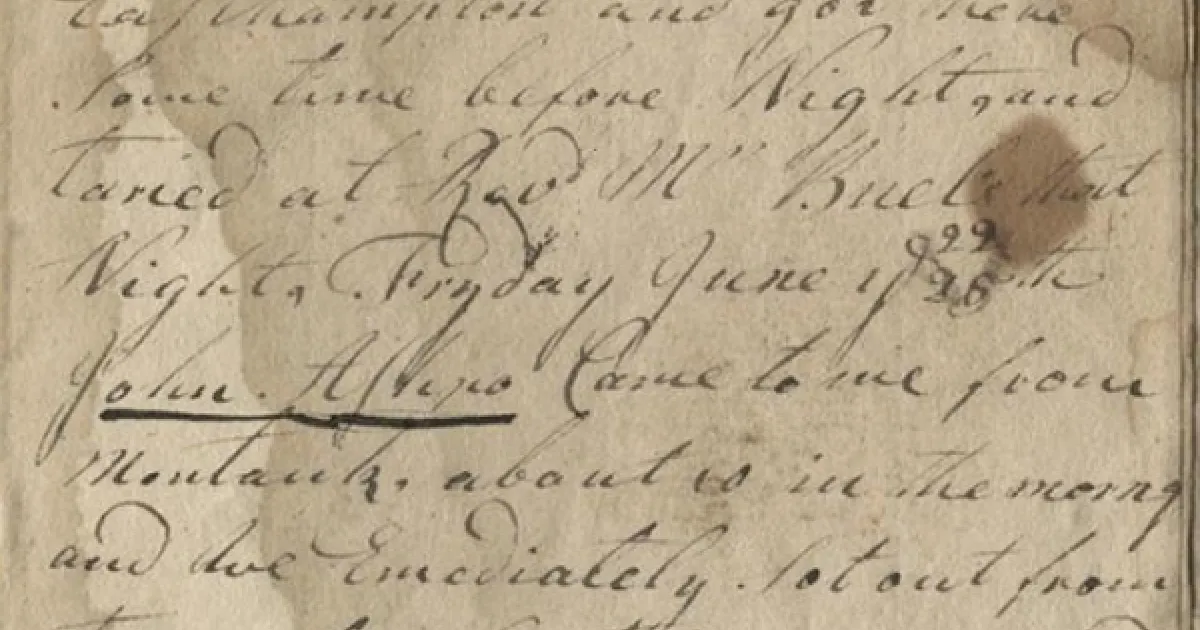 Easthampton and got there
Some time before Night, and
taried at Revd Mr Buel's that
Night, Fryday June ye 22
th
John. Ashpo Came to me from
Montauk, about 10 in the morng
and we Emediately Sot out from